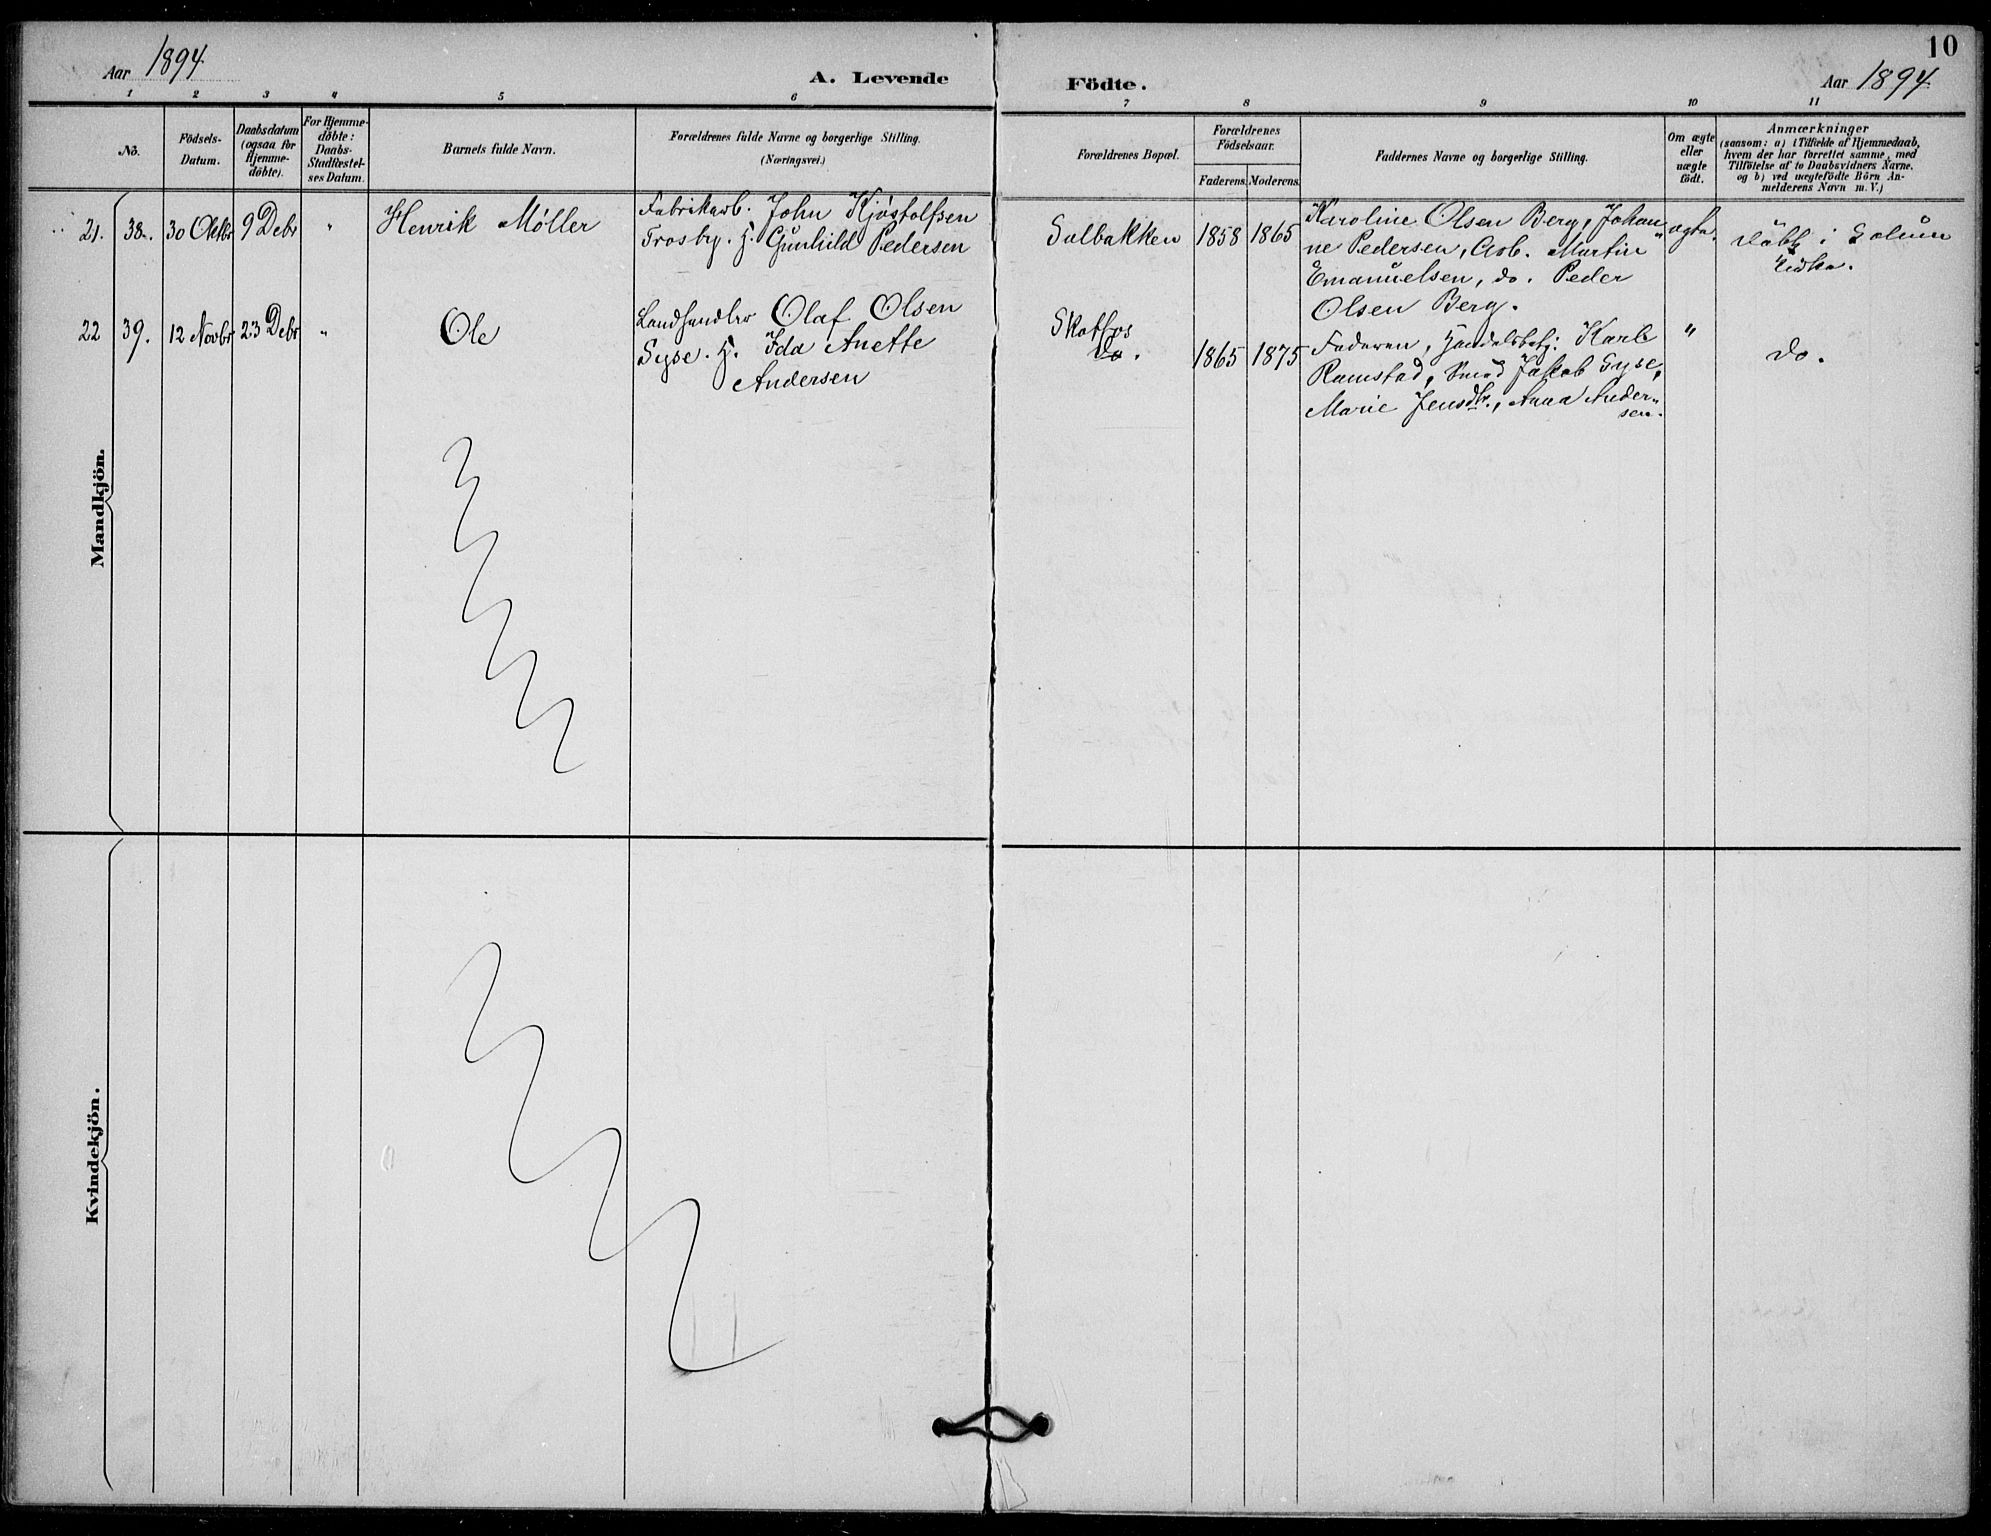 10
Aar 1894
A. Levende
Födte.
Aar 1894
1 2 3 4 5 6 7 8 9 10 11
No.
Födsels-
Datum.
Daabsdatum
(ogsaa for
Hjemme-
döbte).
For Hjemme-
döbte:
Daabs-
Stadfæstel-
ses Datum.
Barnets fulde Navn.
Forældrenes fulde Navne og borgerlige Stilling.
(Næringsvei.)
Forældrenes Bopæl.
Forældrenes
Födselsaar.
Faderens. Moderens.
Faddernes Navne og borgerlige Stilling.
Om ægte
eller
uægte
födt.
Anmærkninger
(saasom: a) i Tilfælde af Hjemmedaab,
hvem der har forrettet samme, med
Tilföielse af to Daabsvidners Navne,
og b) ved uægtefödte Börn An-
melderens Navn m. V.)
Mandkjön.
21. 38. 30 Oktbr 9 Debr " Henrik Møller
Fabrikarb. John Kjøstolfsen
Trosby. H. Gunhild Pedersen
Solbakken 1858 1865
Karoline Olsen Berg, Johan-
ne Pedersen, Arb. Martin
Emanuelsen, do. Peder
Olsen Berg.
ægte.
Döbt i Solum
Kirke.
22 39. 12 Novbr 23 Debr " Ole
Landhandler Olaf Olsen
Syse. H. Ida Anette
Andersen
Skotfos
do. 1865 1875
Faderen, Handelsbetj: Karl
Ramstad, Smed Jakob Syse,
Marie Jensdtr., Anna Ander-
sen.
"
do.
Kvindekjön.